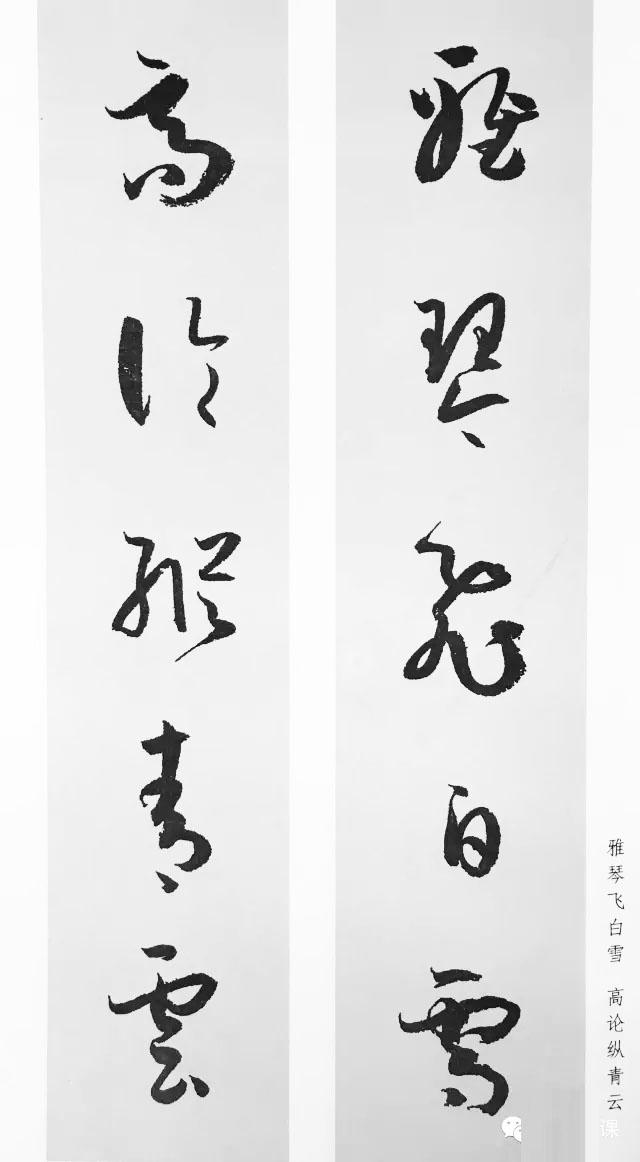 雅琴飛白雪
高论縱青雲
雅琴飞白雪 高论纵青云
课